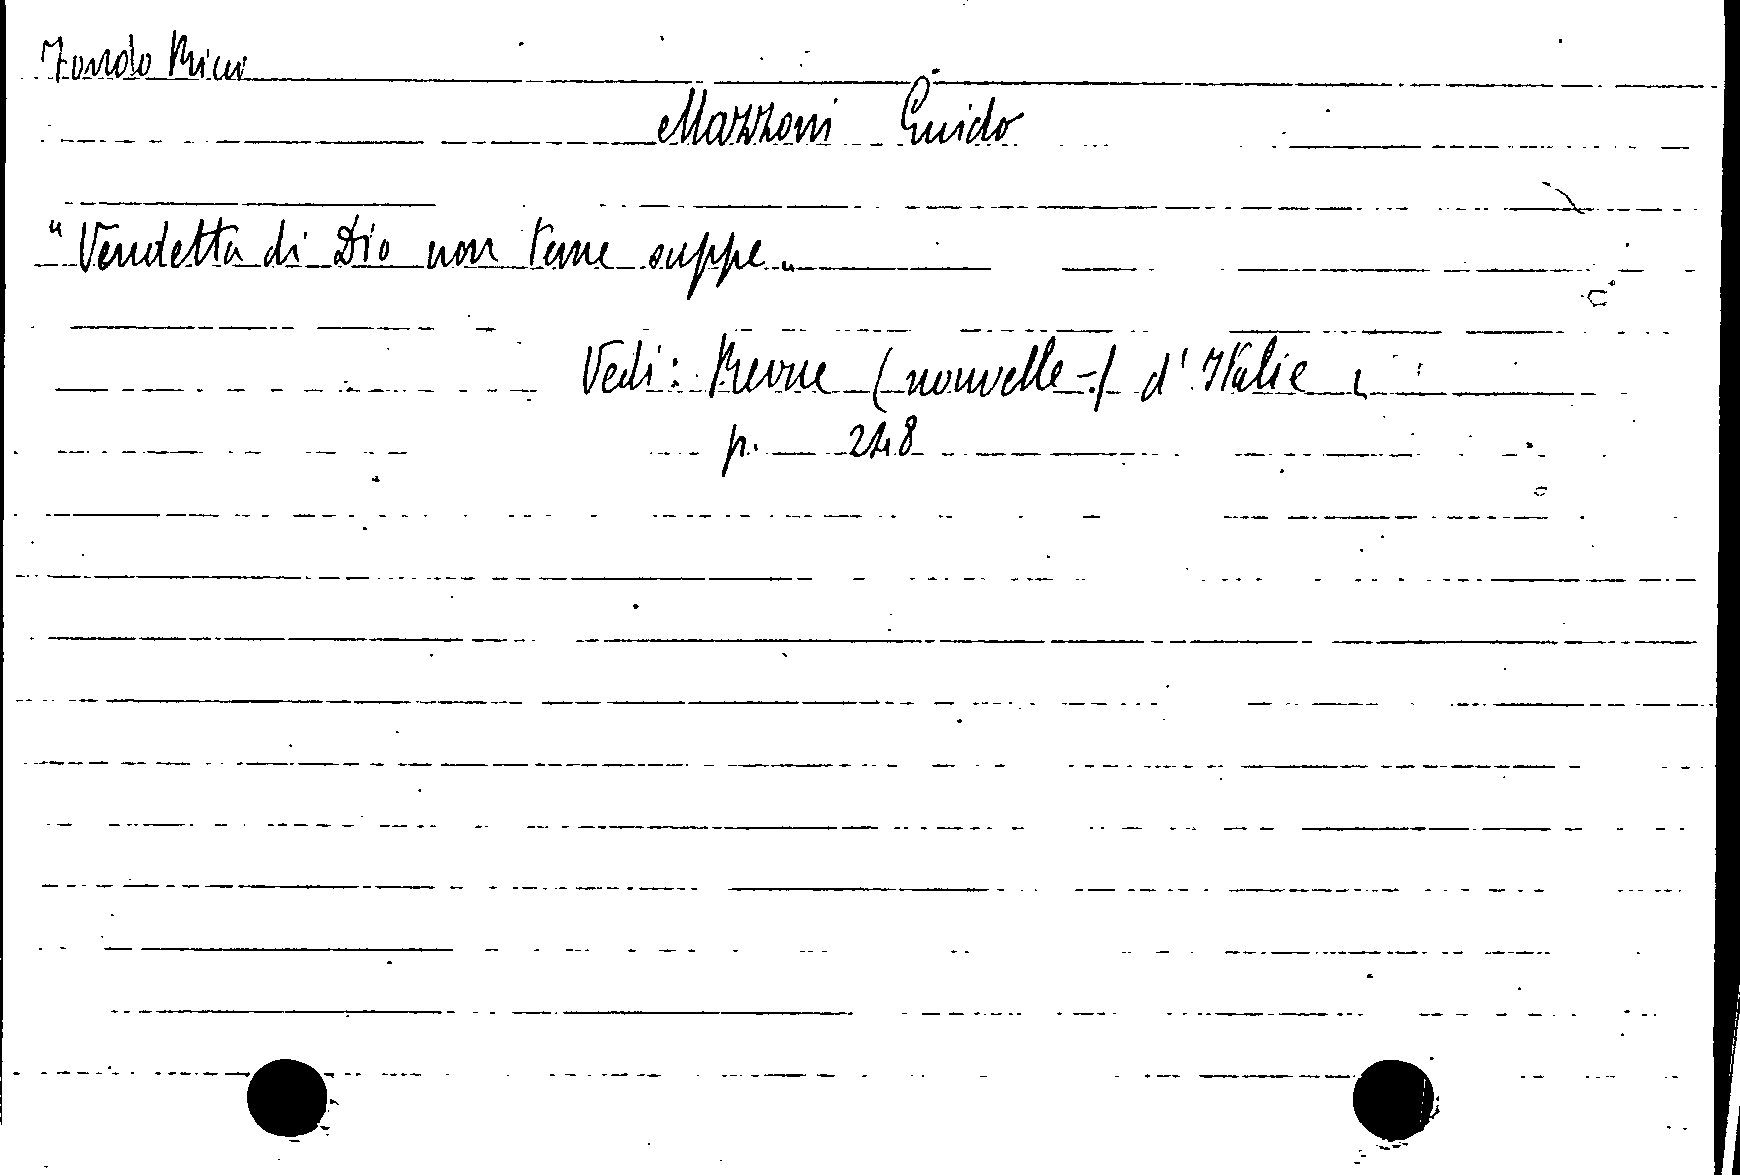 Fondo Ricci
Mazzoni Guido
"Vendetta di Dio non teme suppe"
Vedi: Revue (nouvelle -) d'Italie,
p. 248